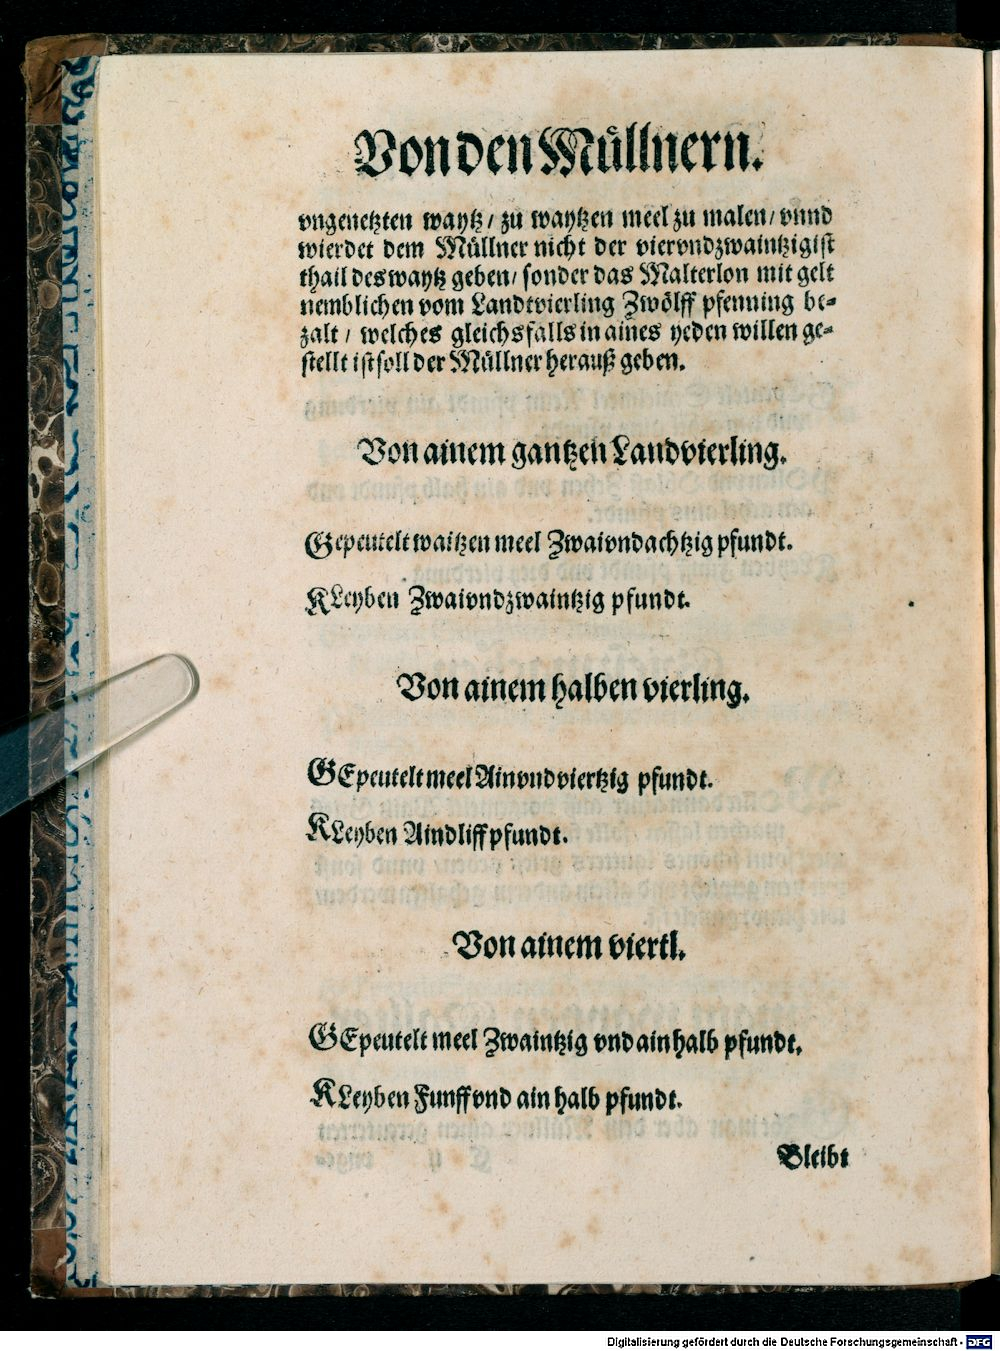 Von den Müllnern.
vngenetzten waytz / zu waytzen meel zu malen / vnnd
wierdet dem Müllner nicht der viervndzwaintzigist
thail des waytz geben / sonder das Malterlon mit gelt
nemblichen vom Landtvierling Zwölff pfenning be=
zalt / welches gleichsfalls in aines yeden willen ge=
stellt ist soll der Müllner herauß geben.
Von ainem gantzen Landvierling.
Gepeutelt waitzen meel Zwaivndachtzig pfundt.
KLeyben Zwaivndzwaintzig pfundt.
Von ainem halben vierling.
GEpeutelt meel Ainvndviertzig pfundt.
KLeyben Aindliff pfundt.
Von ainem viertl.
GEpeutelt meel Zwaintzig vnd ain halb pfundt.
KLeyben Funff vnd ain halb pfundt.
Bleibt
Digitalisierung gefördert durch die Deutsche Forschungsgemeinschaft - DFG